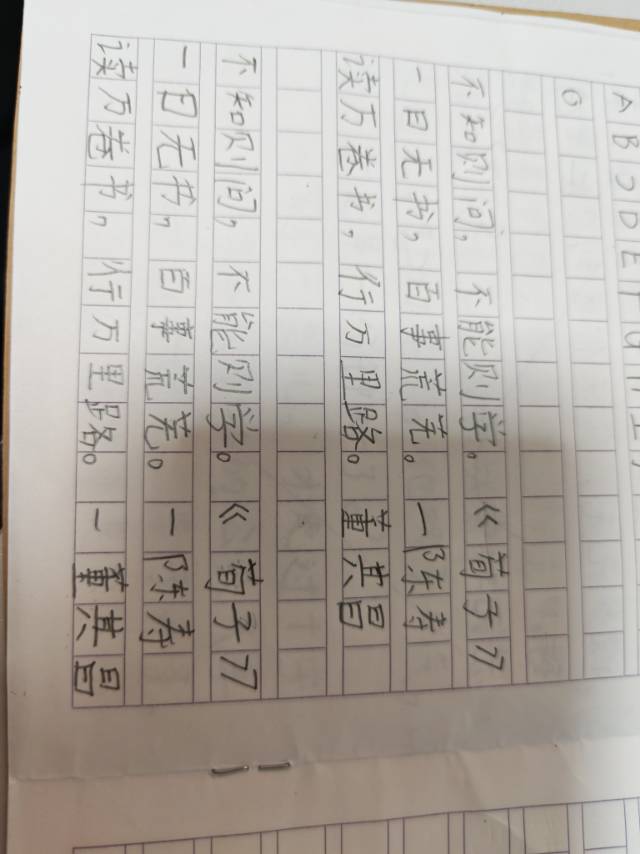 A B C D E F G H I
0
不知则问,不能则学。《荀子》
一日无书,百事荒芜。一陈寿
读万卷书,行万里路。董其昌
不知则问,不能则学。《荀子》
一日无书,百事荒芜。一陈寿
读万卷书,行万里路。一董其昌